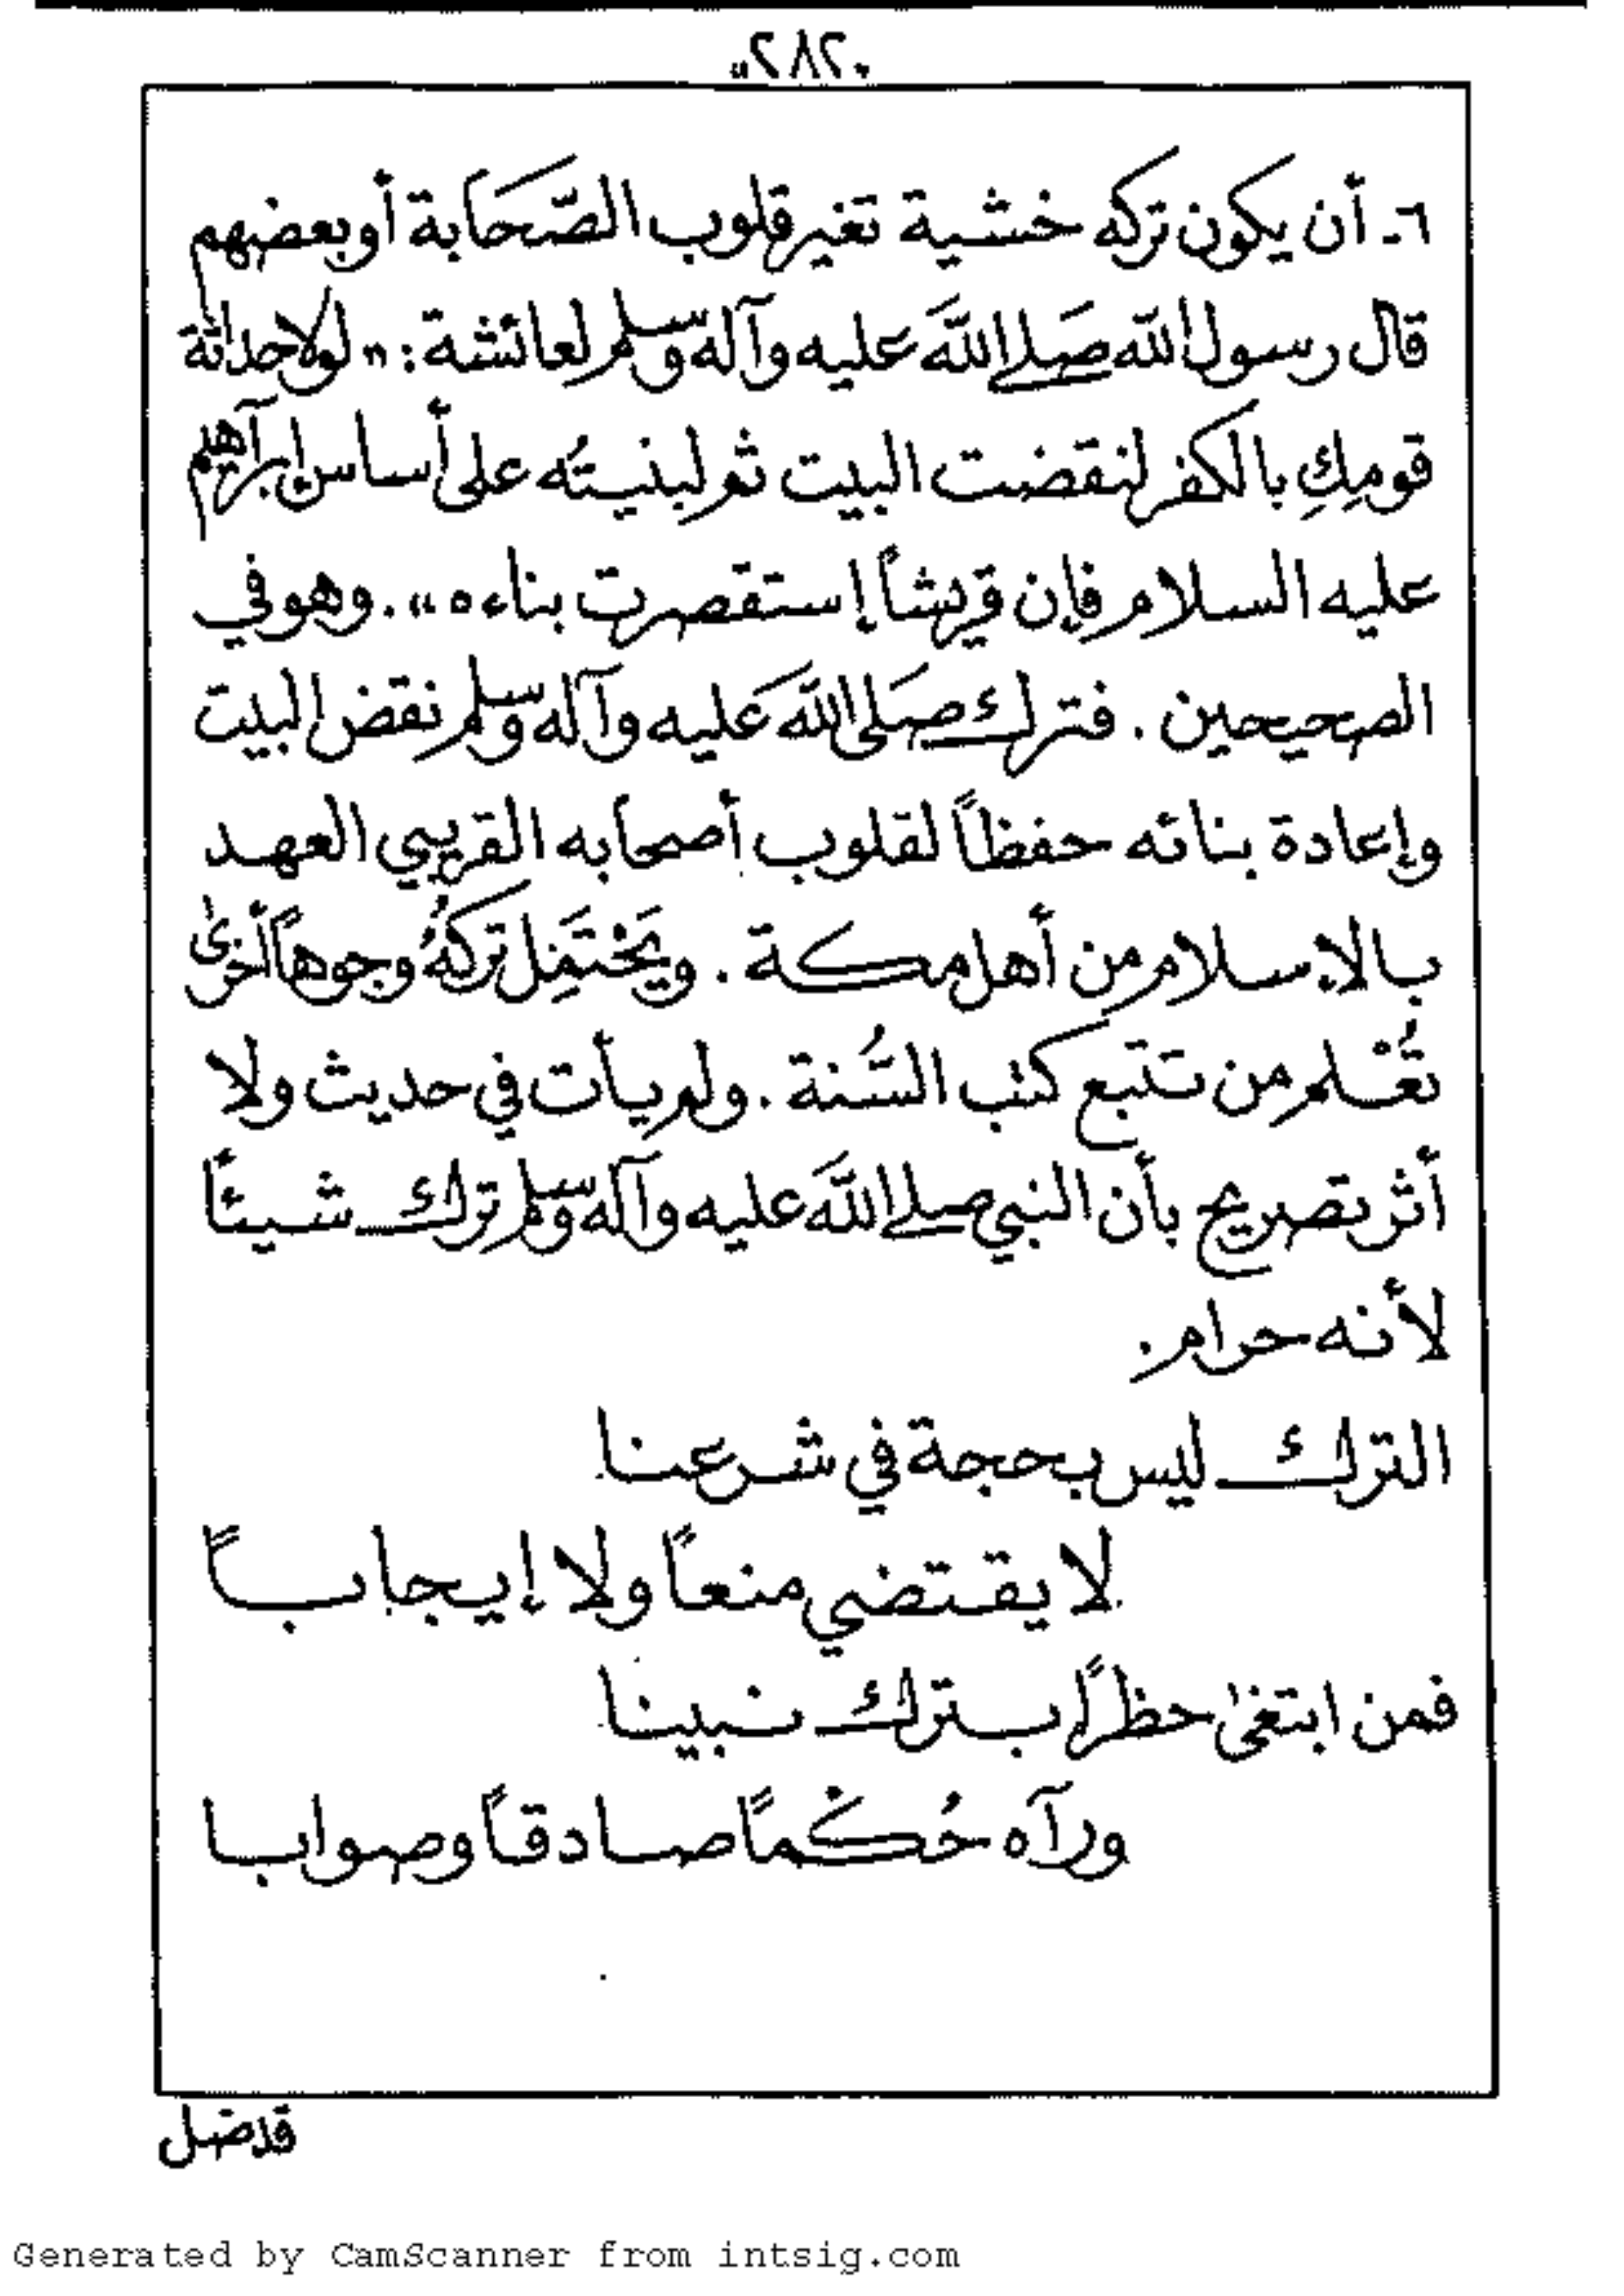 "٢٨٢"
٦- أن يكون تركه خشية تغير قلوب الصَّحَابة أو بعضهم
قال رسول الله صَلى اللهَ عليه وآله وسلم لعائشة: "لولا حداثة
قومِكِ بالكفر لنقضت البيت ثم لبنيتُه على أساس إبرآهيم
عليه السلام فإن قريشاً إستقصرت بناءه". وهو في
الصحيحين. فترك صَلى اللهَ عَليه وآله وسلم نقض البيت
وإعادة بنائه حفظاً لقلوب أصحابه القريبي العهد
بالإسلام من أهل مكة. ويَحْتَمِل تركهُ وجوهاً أخرىٰ
تُعْلم مِن تَتَبع كتب السُّنة. ولم يأت في حديث ولا
أثر تصريح بأن النبي صلى اللهَ عليه وآله وسلم ترك شيئاً
لأنه حرام.
الترك ليس بحجة في شرعنا
لا يقتضي منعاً ولا إيجاباً
فمن ابتغىٰ حظراً بترك نبينا
ورآه حُكْماً صادقاً وصوابا
قد ضل
Generated by CamScanner from intsig.com